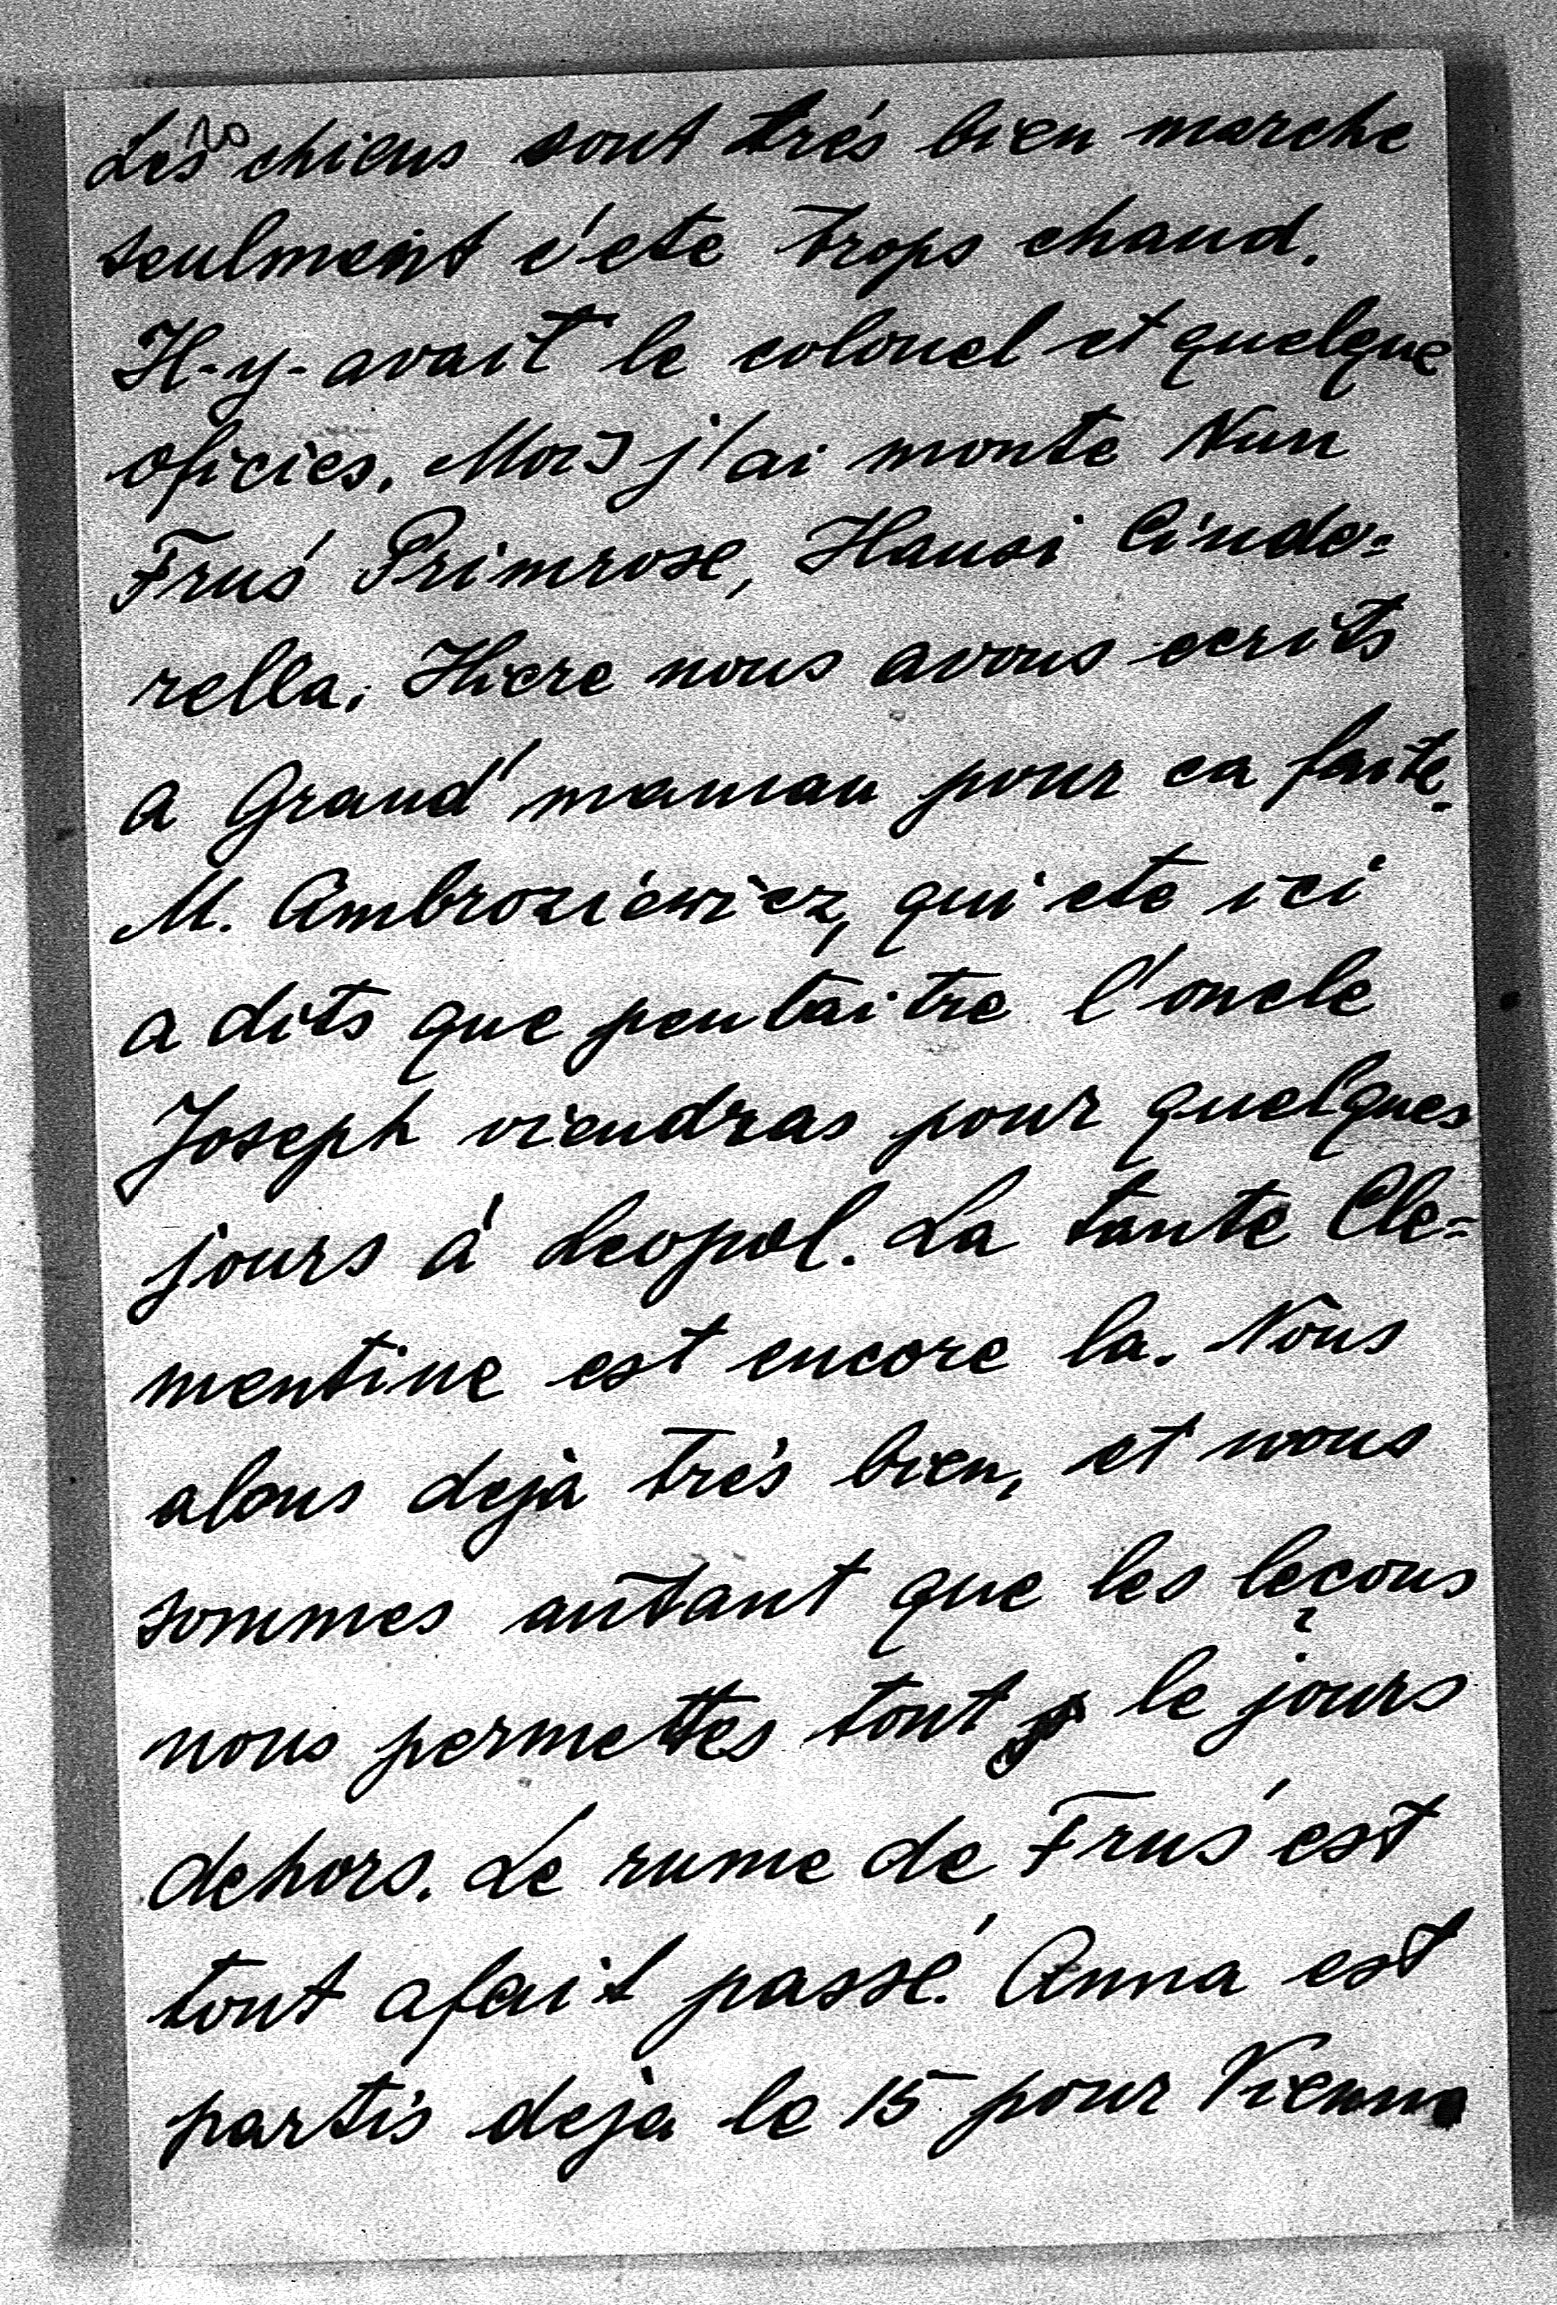 Les 20 chiens sont trés bien marche
seulment c'ete trops chaud.
Il-y-avait le colonel et quelque
oficies. Moi j'ai monte Nun
Fruś Primrose, Hansi Cinde=
rella. Hiere nous avons ecrits
a Grand'maman pour ca faite.
M. Ambroziewicz, qui ete ici
a dits que peutaitre l'oncle
Joseph viendras pour quelques
jours á Leopol. La tante Cle=
mentine est encore la. Nous
alons dejà trés bien, et nous
sommes autant que les leçons
nous permettes tout le jours
dehors. Le rume de Fruś est
tout afait passé. Anna est
partis deja le 15 pour Vienne